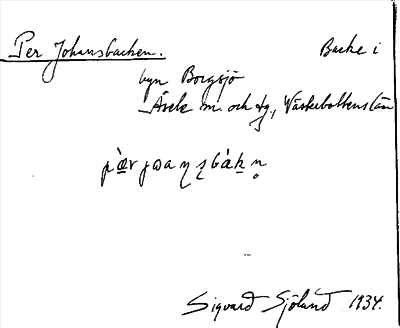 Per Johansbacken. Backe i
byn Borgsjö
Åsele sn. och tg, Västerbottens län
Sigvard Sjölund 1934.